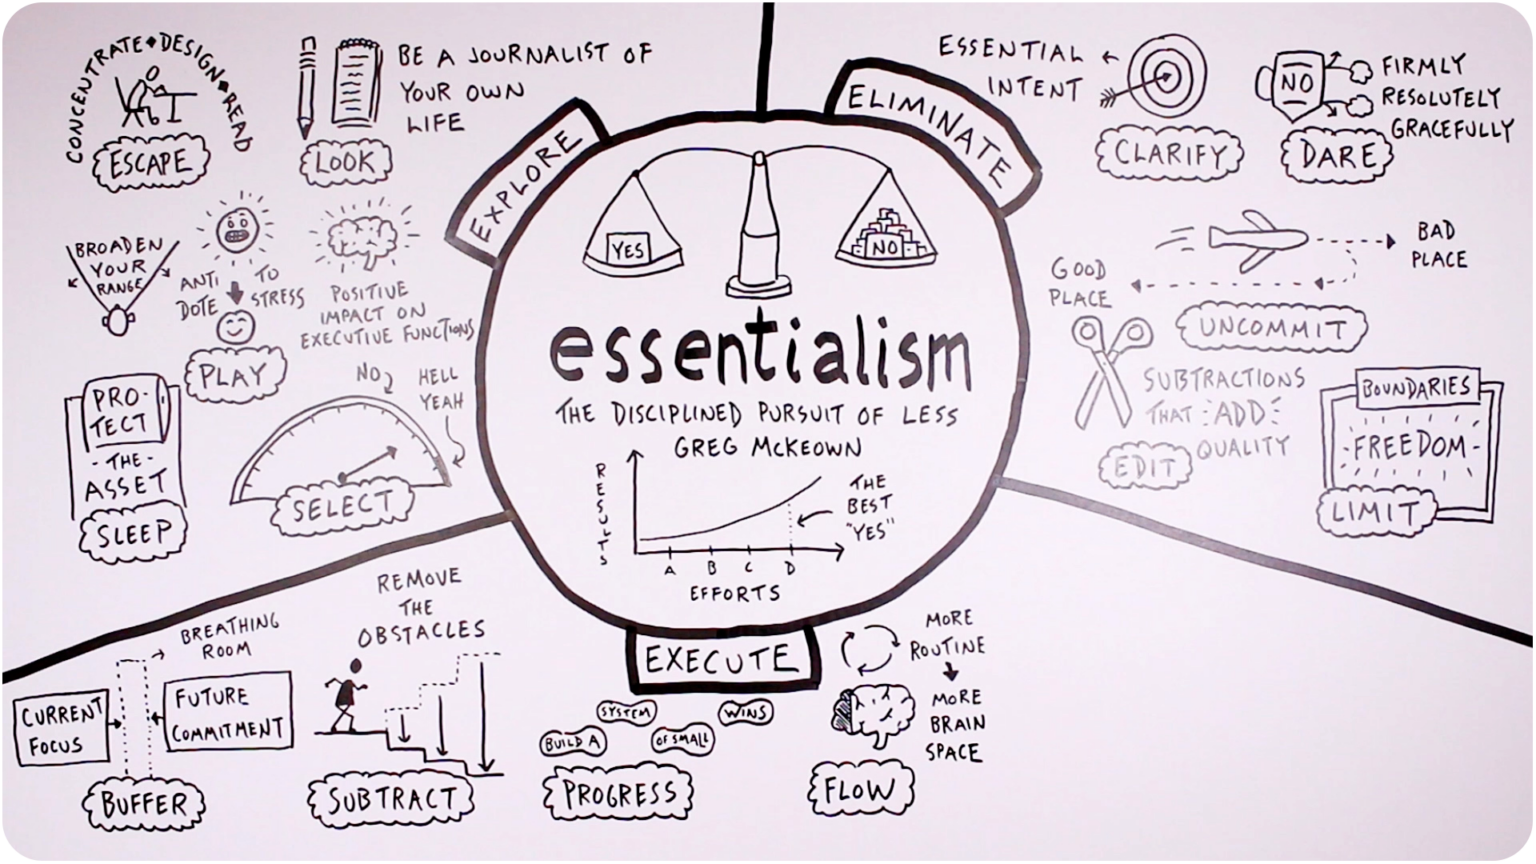 essentialism
THE DISCIPLINED PURSUIT OF LESS
GREG McKEOWN
YES
NO
RESULTS
A B C D
EFFORTS
THE
BEST
"YES"
EXPLORE
CONCENTRATE • DESIGN • READ
ESCAPE
BE A JOURNALIST OF
YOUR OWN
LIFE
LOOK
BROADEN
YOUR
RANGE
ANTI
DOTE
TO
STRESS
POSITIVE
IMPACT ON
EXECUTIVE FUNCTIONS
PLAY
PRO-
TECT
-THE-
ASSET
SLEEP
NO
HELL
YEAH
SELECT
ELIMINATE
ESSENTIAL
INTENT
CLARIFY
NO
FIRMLY
RESOLUTELY
GRACEFULLY
DARE
BAD
PLACE
GOOD
PLACE
UNCOMMIT
SUBTRACTIONS
THAT ADD
QUALITY
EDIT
BOUNDARIES
FREEDOM
LIMIT
EXECUTE
BREATHING
ROOM
CURRENT
FOCUS
FUTURE
COMMITMENT
BUFFER
REMOVE
THE
OBSTACLES
SUBTRACT
BUILD A
SYSTEM
OF SMALL
WINS
PROGRESS
MORE
ROUTINE
MORE
BRAIN
SPACE
FLOW